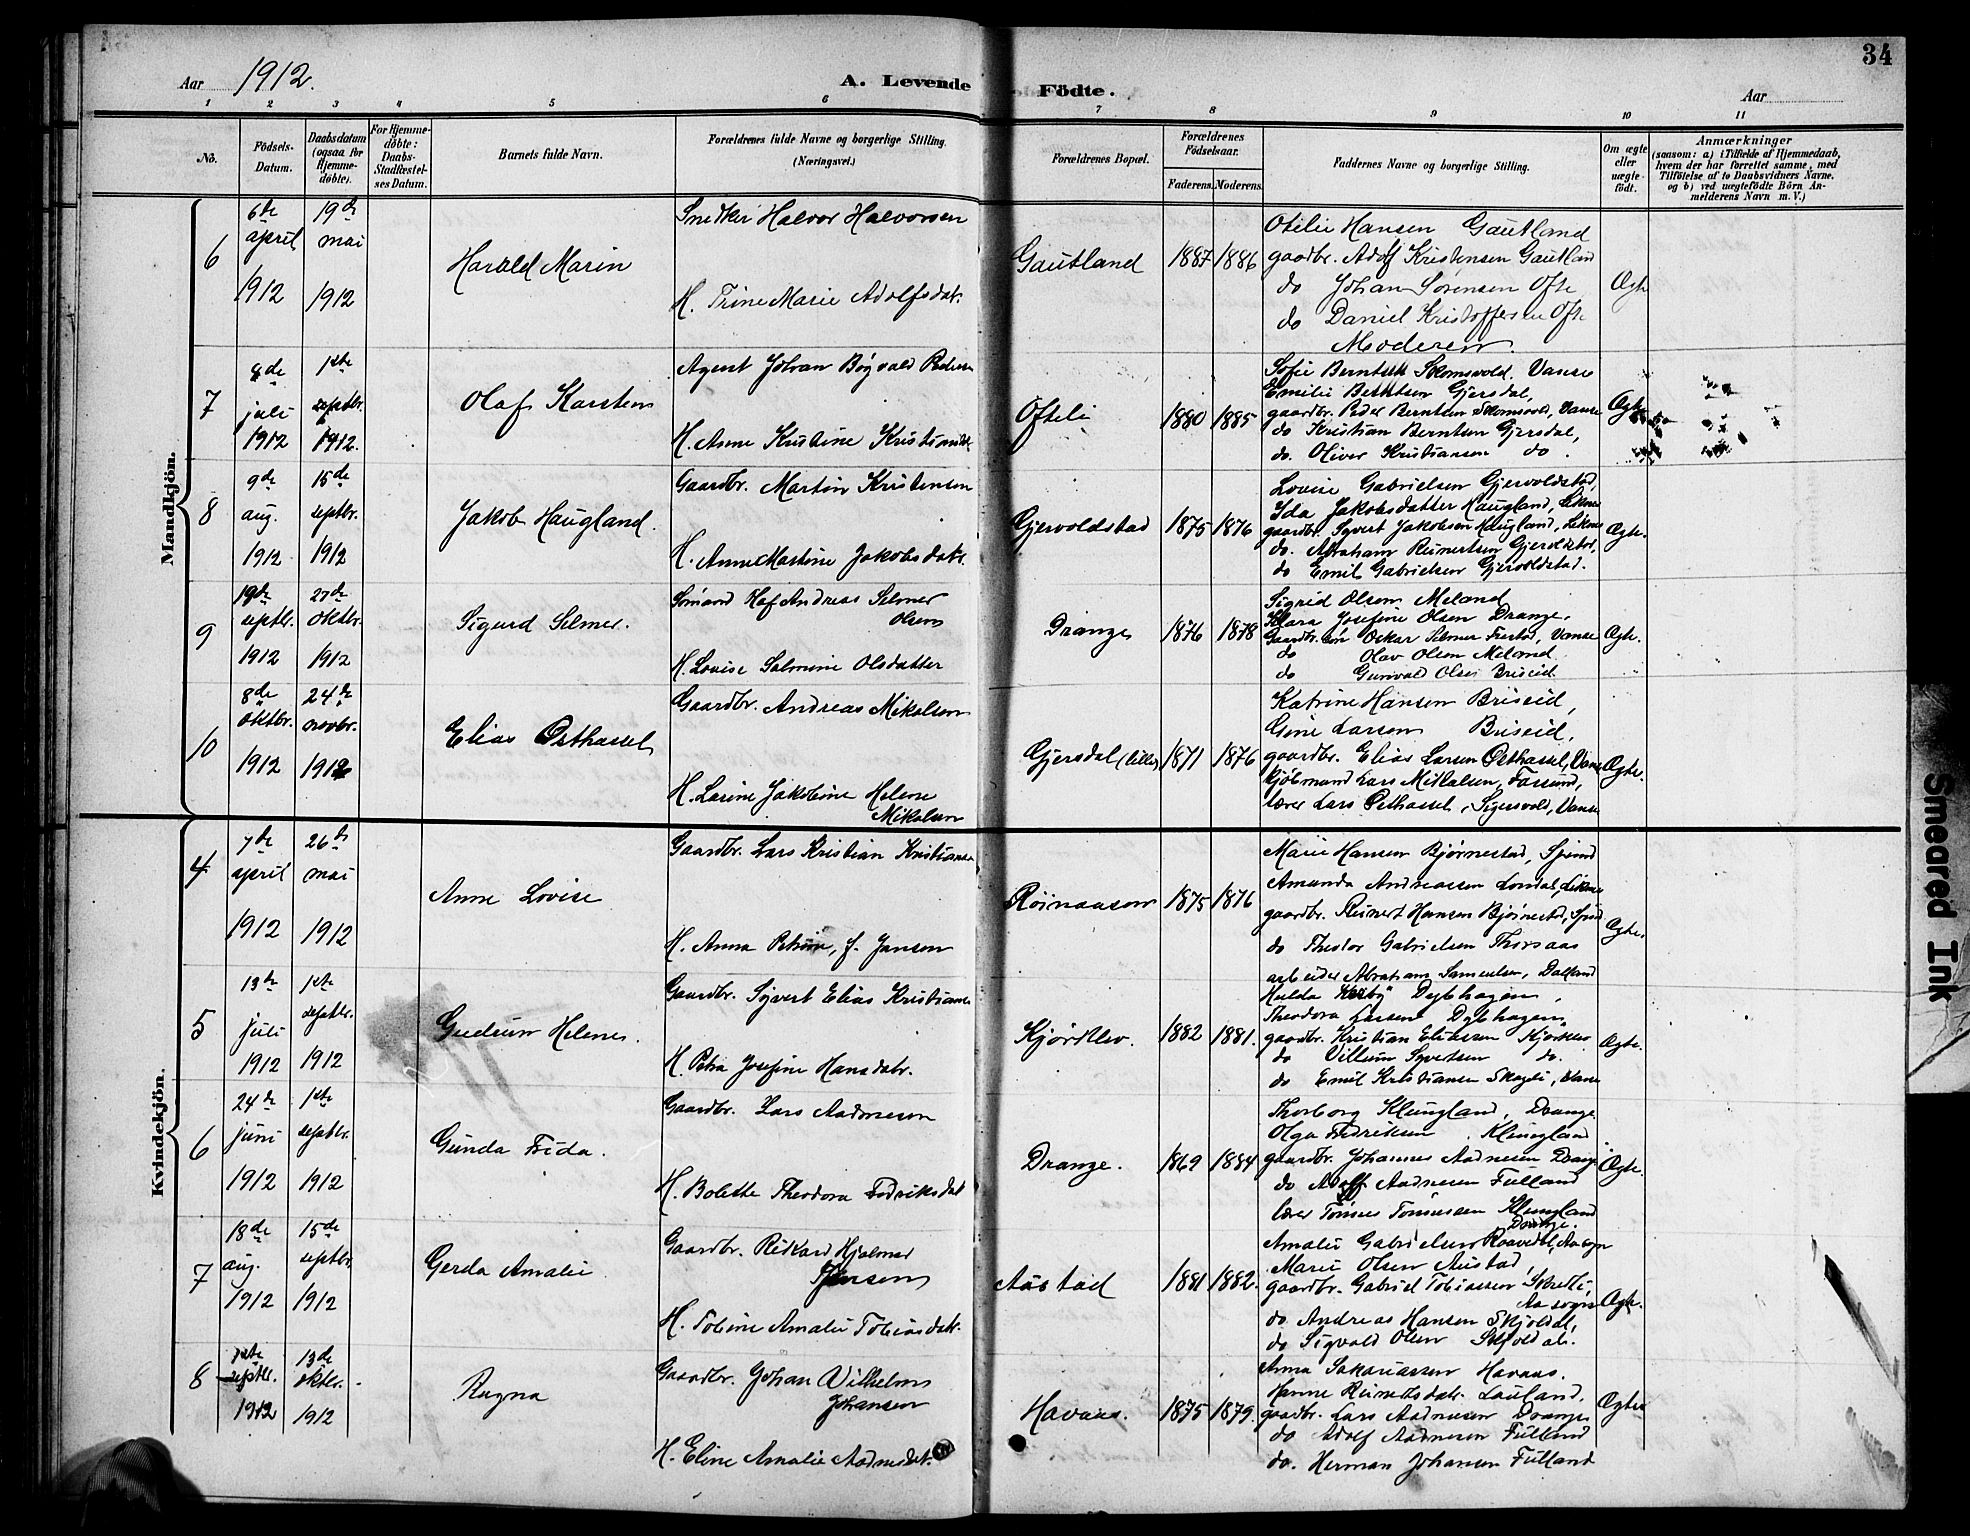 34
Aar 1912. A. Levende Födte. Aar
1 2 3 4 5 6 7 8 9 10 11
No.
Födsels-Datum.
Daabsdatum (ogsaa for Hjemme-döbte).
For Hjemme-döbte: Daabs-Stadfæstel-ses Datum.
Barnets fulde Navn.
Forældrenes fulde Navne og borgerlige Stilling. (Næringsvei.)
Forældrenes Bopæl.
Forældrenes Födselsaar.
Faderens. Moderens.
Faddernes Navne og borgerlige Stilling.
Om ægte eller uægte födt.
Anmærkninger
(saasom: a) i Tilfælde af Hjemmedaab,
hvem der har forrettet samme, med
Tilföielse af to Daabsvidners Navne.
og b) ved uægtefödte Börn An-
melderens Navn m. V.)
Mandkjön.
6
6de april 1912
19de mai 1912
Harald Marin
Snedker Halvor Halvorsen
H. Trine Marie Adolfsdatr.
Gautland
1887 1886
Otilie Hansen Gautland
gaardbr. Adolf Kristensen Gautland
do Johan Sørensen Ofte
do Daniel Kristoffersen Ofte
Moderen
Ægte
7
8de juli 1912
1ste septbr. 1912.
Olaf Karsten
Agent Johan Bøgvald Pedersen
H. Anne Kristine Kristiansdtr.
Øfteli
1880 1885
Sofie Berntsen Skomsvold. Vanse
Emilie Berntsen Gjersdal,
gaardbr. Peder Berntsen Skomsvold, Vanse
do Kristian Berntsen Gjersdal,
do. Oliver Kristiansen do.
Ægte
8
9de aug. 1912
15de septbr. 1912
Jakob Haugland.
Gaardbr. Martin Kristensen
H. Anne Martine Jakobsdatr.
Gjervoldstad
1875 1876
Lovise Gabrielsen Gjervoldstad,
Ida Jakobsdatter Haugland, Liknes
gaardbr. Syvert Jakobsen Haugland, Liknes
do. Abraham Reinertsen Gjervoldstad,
do Emil Gabrielsen Gjervoldstad.
Ægte.
9
19de septbr. 1912
27de oktbr. 1912
Sigurd Selmer.
Sømand Andreas Selmer Olsen
H. Lovise Salmine Olsdatter
Drange
1876 1878
Sigrid Olsen Meland
Klara Josefine Olsen Drange,
Gaardbr. søn Oskar Selmer Vanse
do Olav Olsen Meland
do Gunvald Olsen Briseid.
Ægte.
10
8de oktbr. 1912
24de novbr. 1912
Elias Østhassel
Gaardbr. Andreas Mikalsen
H. Larine Jakobine Helene Mikalsen
Gjersdal (lille)
1871 1876
Katrine Hansen Briseid,
Gine Larsen Briseid,
gaardbr. Elias Larsen Østhassel, Vanse
kjøbmand Lars Mikalsen, Farsund,
lærer Lars Østhassel, Sigersvold, Vanse
Ægte.
Kvindekjön.
4
7de april 1912
26de mai 1912
Anne Lovise
Gaardbr. Lars Kristian Kristiansen
H. Anna Petrine, f. Jansen
Röinaasen
1875 1876
Marie Hansen Bjørnestad, Spind
Amanda Andreassen Londal, Liknes
gaardbr. Reinert Hansen Bjørnestad, Spind
do Theodor Gabrielsen Thorsaas
arbeider Abraham Samuelsen, Dalland
Ægte.
5
13de juli 1912
1ste septbr. 1912
Gudrun Helene.
Gaardbr. Syvert Elias Kristiansen
H. Petra Josefine Hansdatr.
Kjørrlev.
1882 1881.
Hulda Dybhagen,
Theodora Larsen Dybhagen,
gaardbr. Kristian Eliassen Kjørrlev
do Villum Syvertsen do.
do Emil Kristiansen Skogli, Vanse
Ægte.
6
24de juni 1912
1ste septbr. 1912
Gunda Frida.
Gaardbr. Lars Aadnesen
H. Bolette Theodora Fredriksdat
Drange.
1869 1884
Thorborg Klungland, Drange
Olga Fredriksen Klungland
gaardbr. Johannes Aadnesen Drange
do Adolf Aadnesen Fulland
lærer Tønnes Tønnessen Klungland Drange.
Ægte.
7
18de aug. 1912
15de septbr. 1912
Gerda Amalie
Gaardbr. Rikard Hjalmar Jensen
H. Tobine Amalie Tobiasdatr.
Austad
1881 1882.
Amalie Gabrielsen Aa sogn
Marie Olsen Austad,
gaardbr. Gabriel Tobiassen Aa sogn
do. Andreas Hansen Skjoldal,
do Sigvald Olsen Skjoldal.
Ægte.
8
1ste septbr. 1912
13de oktbr. 1912
Ragna
Gaardbr. Johan Vilhelm Johansen
H. Eline Amalie Aadnesdat.
Havaas.
1875 1879.
Anna Sakariassen Havaas.
Hanne Reinertsdatr. Lauland,
gaardbr. Lars Aadnesen Drange
do Adolf Aadnesen Fulland
do. Herman Johansen Fulland
Ægte
Smeared Ink